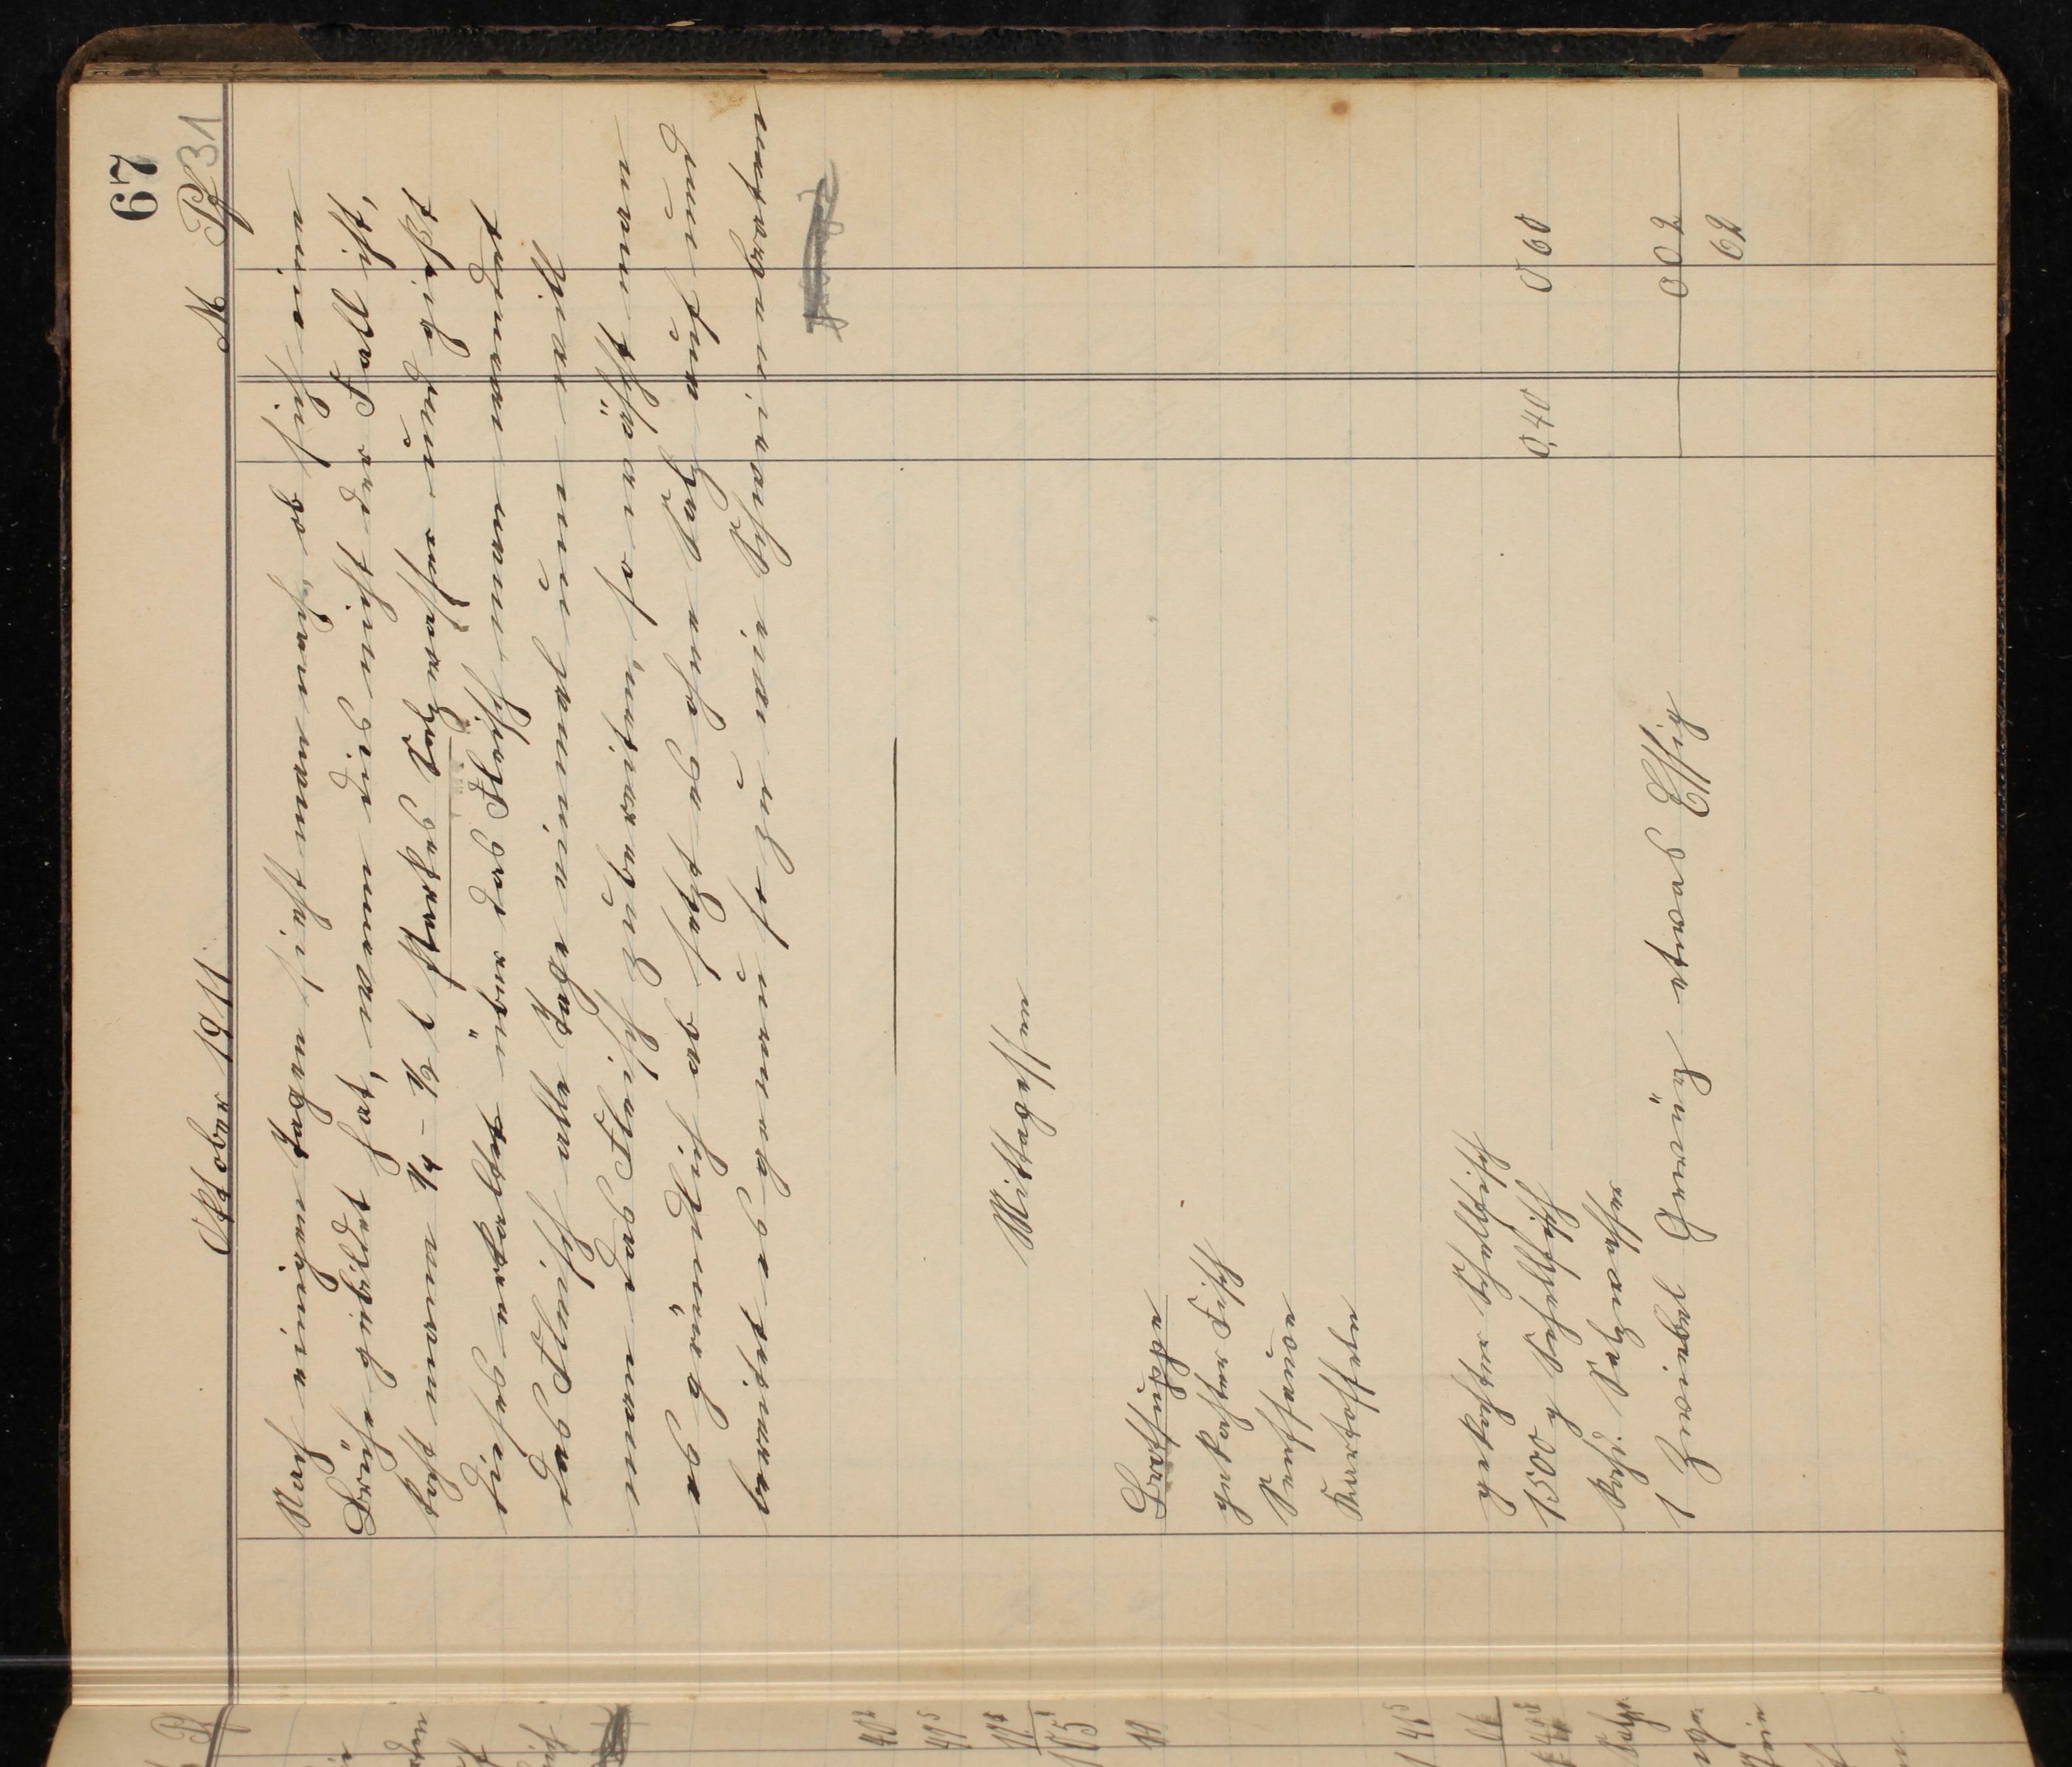 67
31
Oktober 1911. M Pf
Nach einigen Tagen sieht man nach ob sich eine
Brühe gebildet hat, wenn dies nicht der Fall ist,
kocht man 1/4 - 1/2 l starkes Salzwasser und gießt
dieses erkaltet über das Fleisch, man wendet
das Fleisch alle Tage einmal um. Will
man das Fleisch zubereiten so wäscht man
es gründlich ab setzt es ohne Salz auf und
bereitet es genau so zu wie die Schweinebraten

Mittagessen
Brotsuppe
gekochter Fisch
Senfsauce
Kartoffeln

gekochter Schellfisch
1500 g Schellfisch 0,40 0 60
kochd. Salzwasser
1 Zwiebel Gewürz etwas Essig 0 02
62
Pf
1 05